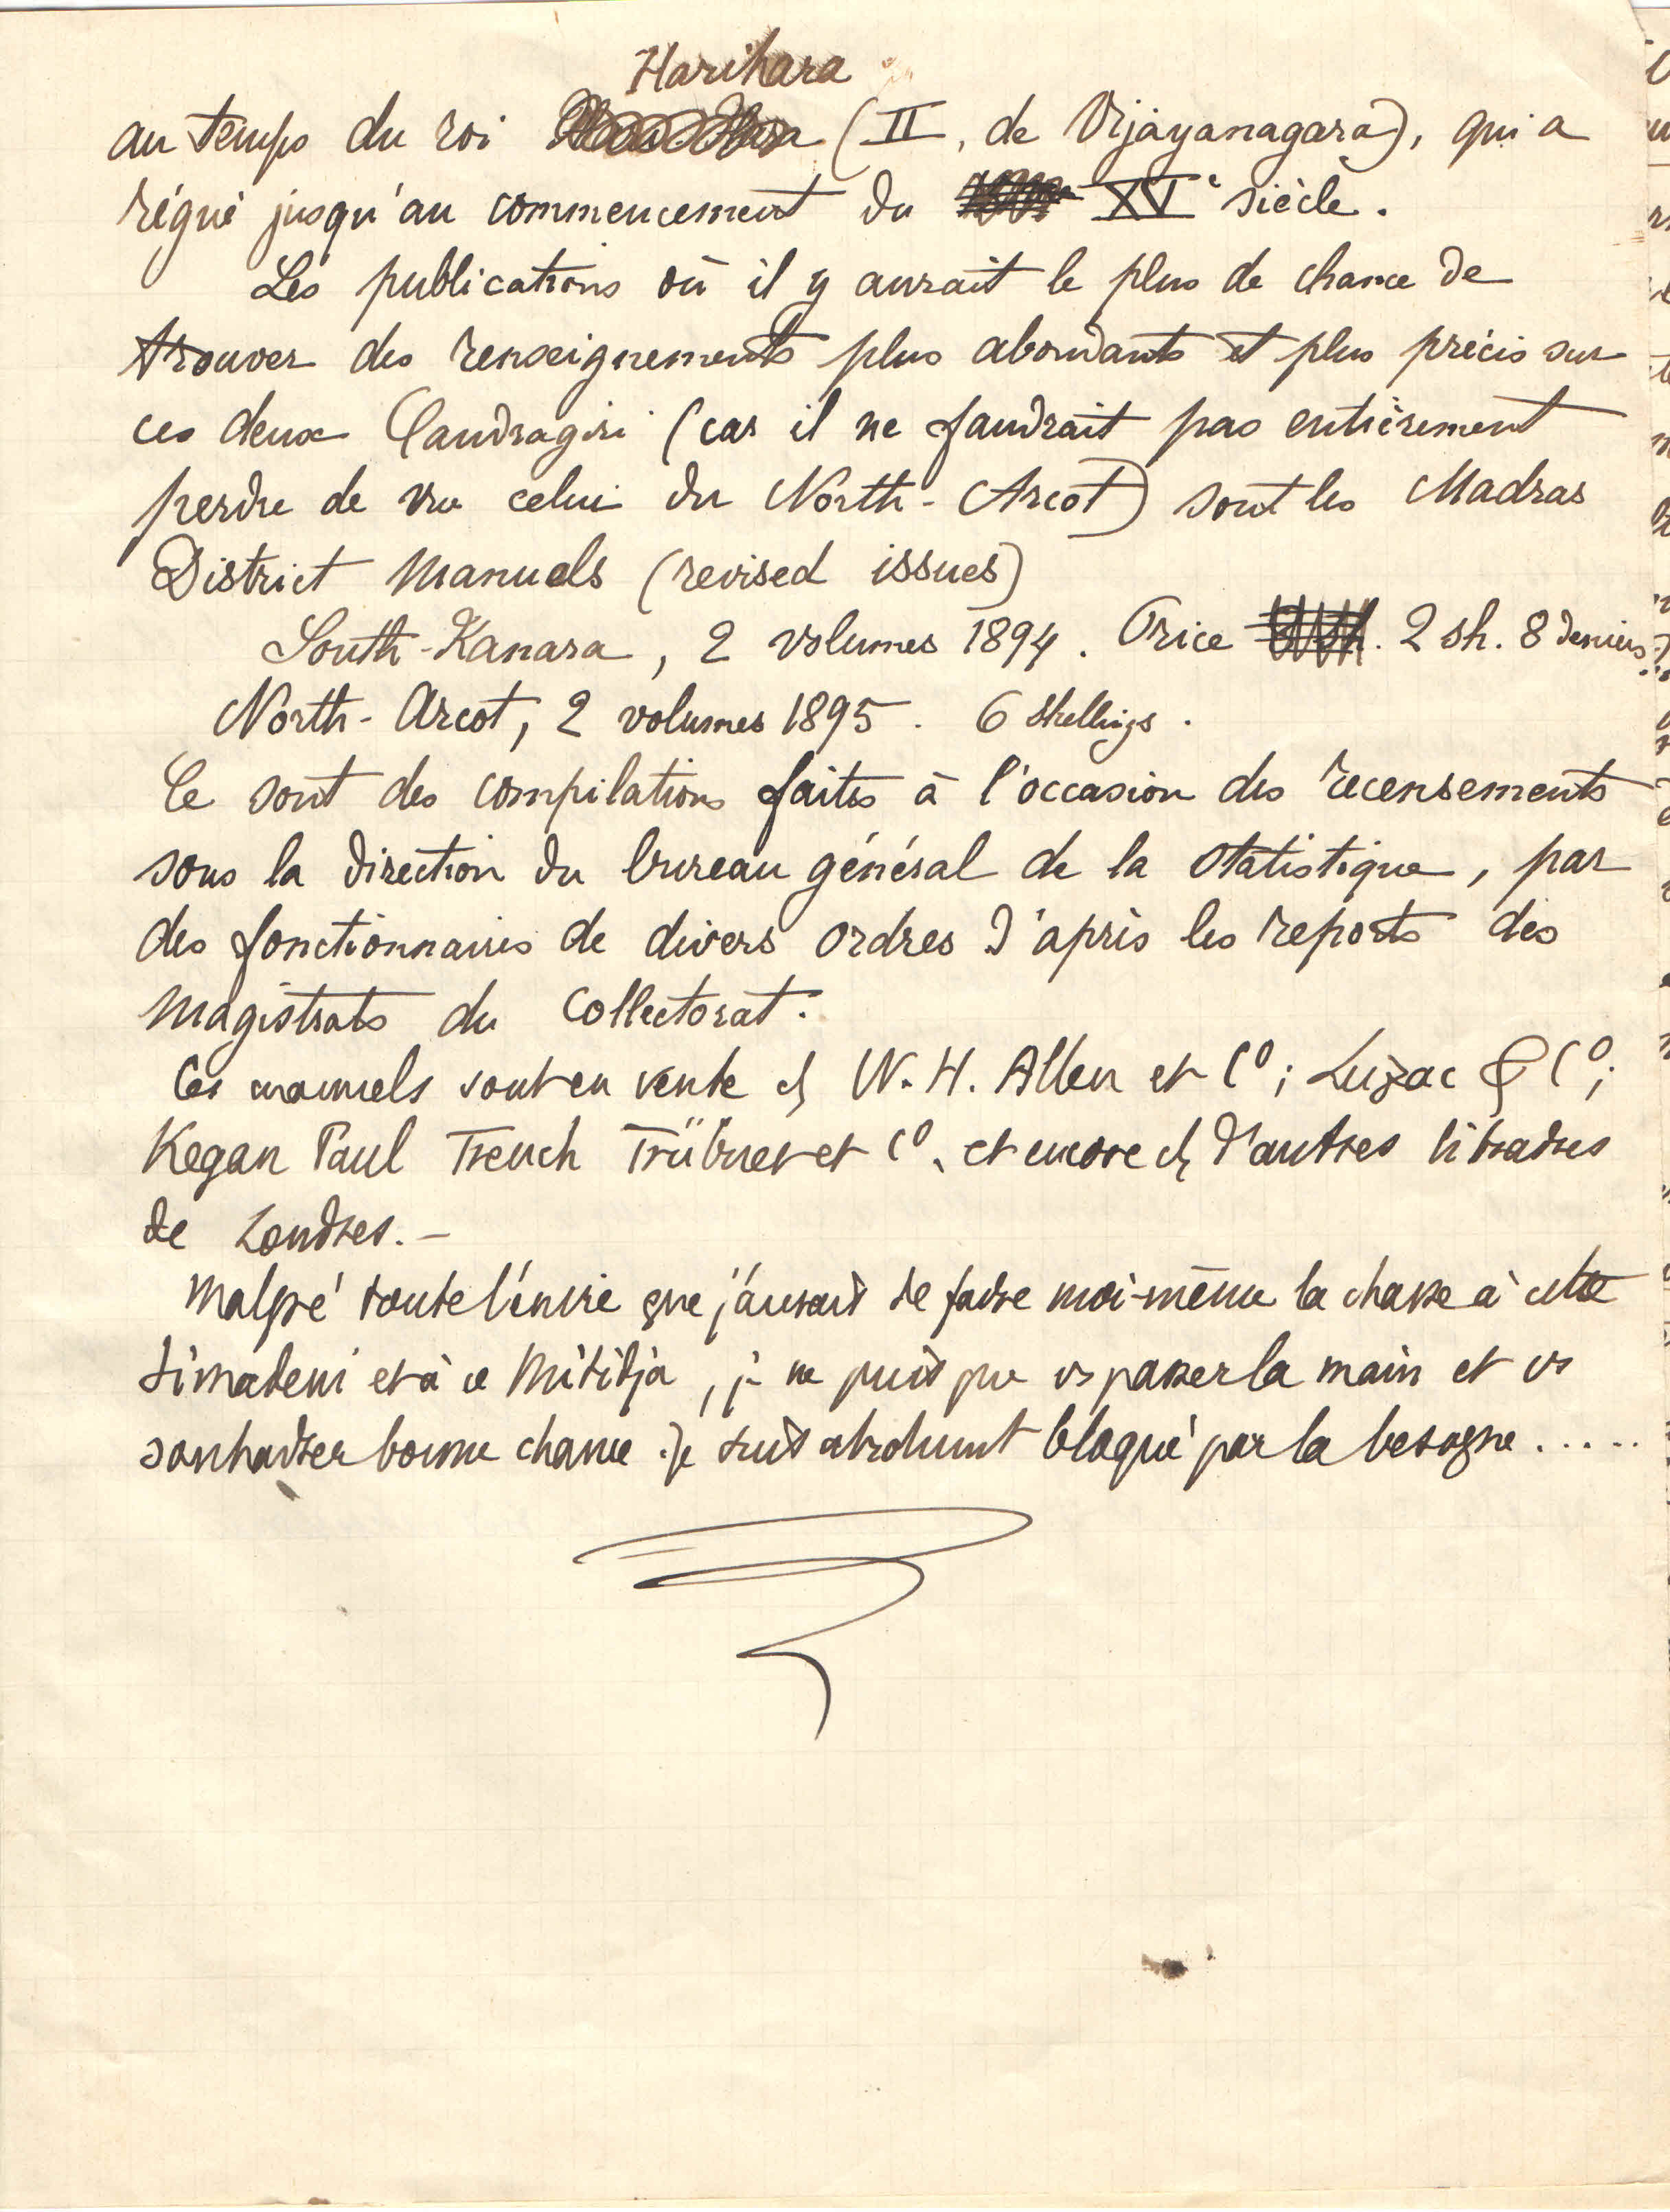 Harihara
au temps du roi (II, de Vijayanagara), qui a
régné jusqu'au commencement du XVe siècle.
Les publications où il y aurait le plus de chance de
trouver des renseignements plus abondants et plus précis sur
ces deux Candragiri (car il ne faudrait pas entièrement
perdre de vue celui du North-Arcot) sont les Madras
District Manuels (revised issues)
South-Kanara, 2 volumes 1894. Price 2 sh. 8 deniers
North-Arcot, 2 volumes 1895. 6 shellings.
Ce sont des compilations faites à l'occasion des recensements
sous la direction du bureau général de la statistique, par
des fonctionnaires de divers ordres d'après les reports des
magistrats du Collectorat.
Ces manuels sont en vente ch W. H. Allen et Co; Luzac & Co;
Kegan Paul Trench Trübner et Co, et encore ch d'autres libraires
de Londres. –
Malgré toute l'envie que j'aurais de faire moi-même la chasse à cette
et à ce, je ne puis que vs passer la main et vs
souhaiter bonne chance. Je suis absolumt bloqué par la besogne.....